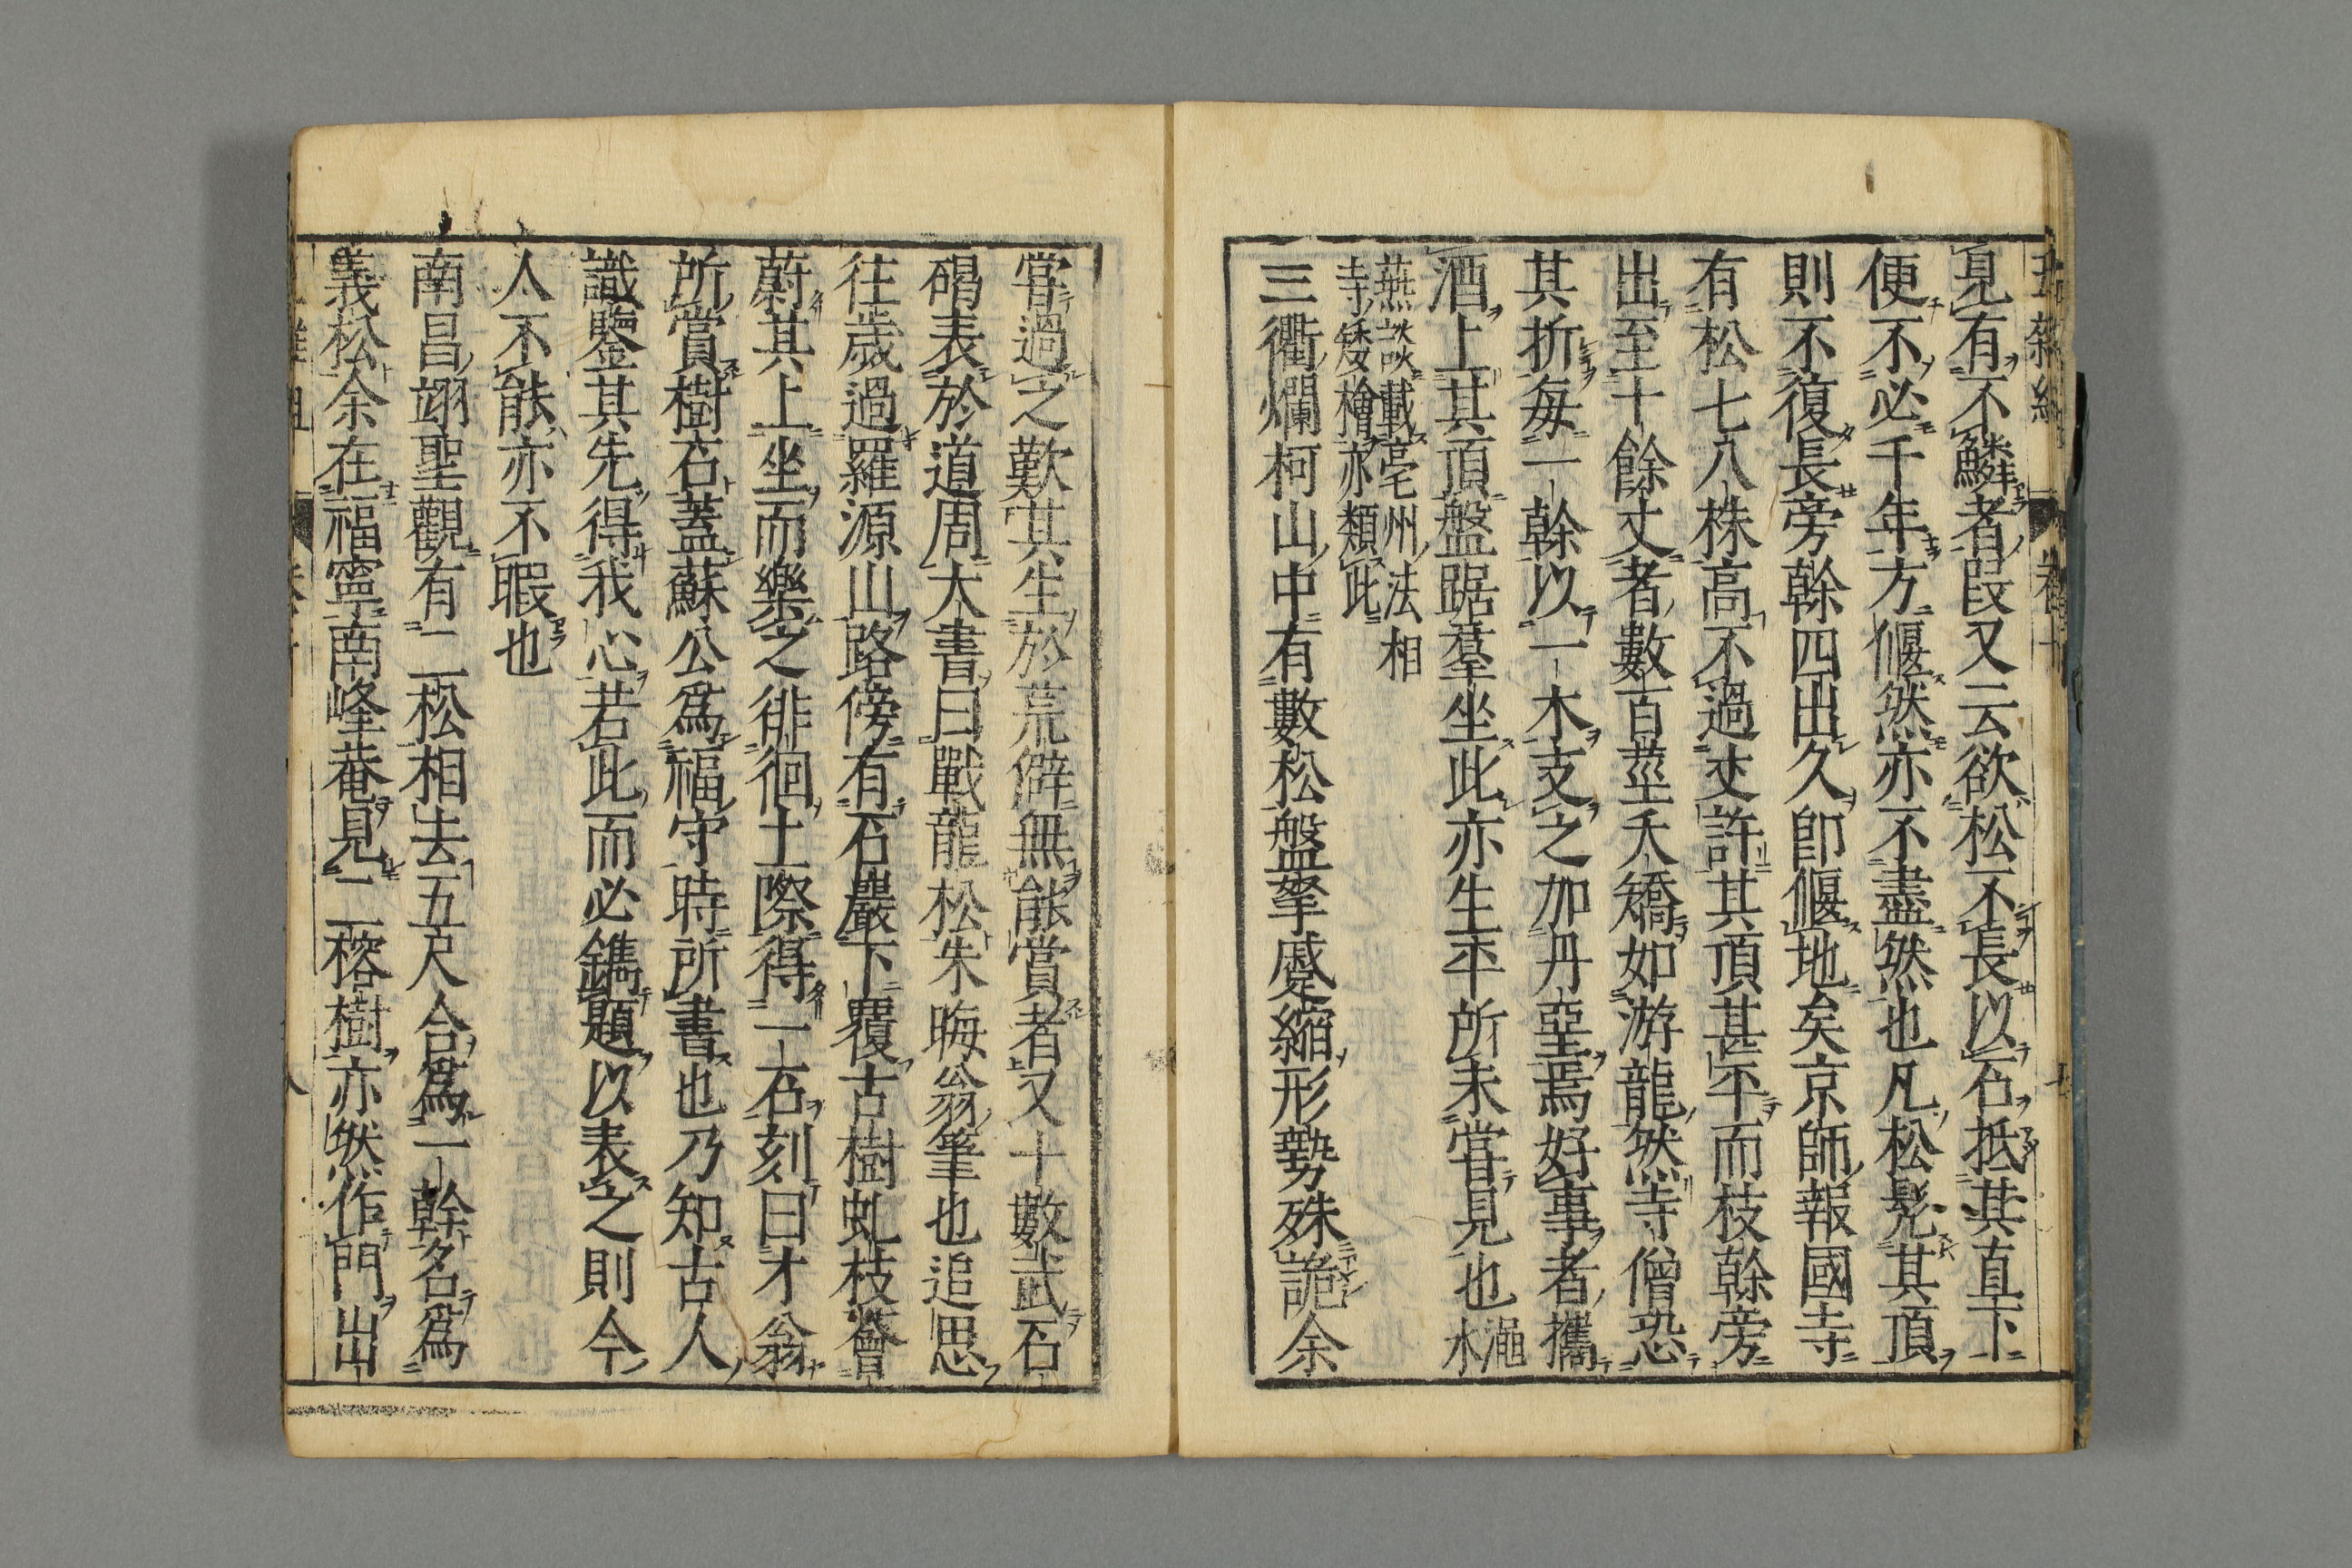 見有不鱗者段又云欲松不長以石抵其直下
便不必千年方偃然亦不盡然也凡松髠其頂
則不復長旁榦四出久即偃地矣京師報國寺
有松七八株高不過丈許其頂甚平而枝榦旁
出至十餘丈者數百莖夭矯如游龍然寺僧恐
其折每一榦以一木支之加丹堊焉好事者攜
酒上其頂盤踞羣坐此亦生平所未嘗見也澠水
燕談載亳州法相
寺矮檜亦類此
三衢爛柯山中有數松盤拏蹙縮形勢殊詭余
嘗過之歎其生於荒僻無能賞者又十數武石
碣表於道周大書曰戰龍松朱晦翁筆也追思
往歲過羅源山路傍有石巖下覆古樹虬枝薈
蔚其上坐而樂之徘徊土際得一石刻曰才翁
所賞樹石蓋蘇公爲福守時所書也乃知古人
識鑒其先得我心若此而必鐫題以表之則今
人不能亦不暇也
南昌翊聖觀有二松相去五尺合爲一榦名爲
義松余在福寧南峰菴見二榕樹亦然作門出